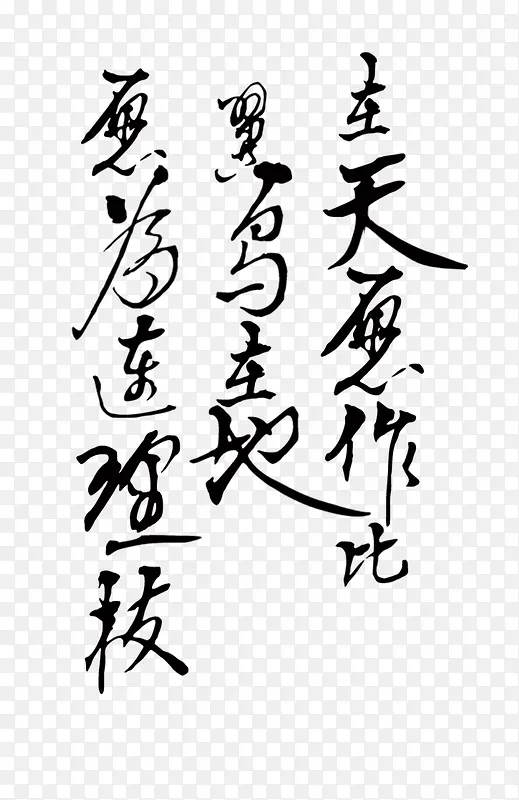 在天愿作比
翼鸟在地
愿为连理枝